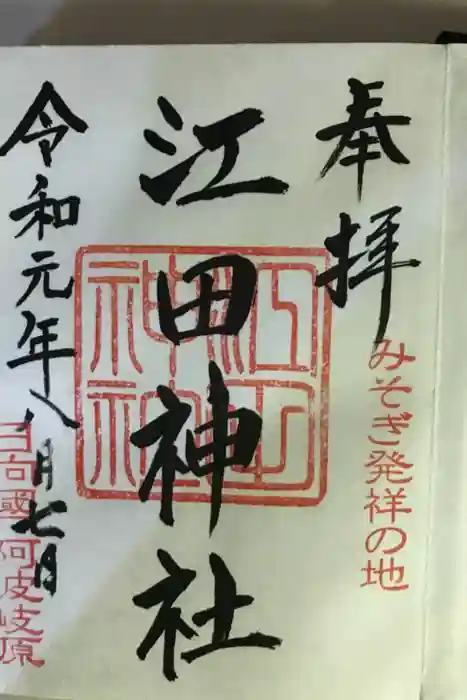 奉拝
みそぎ発祥の地
江田神社
江田神社
令和元年八月七日
日向國 阿波岐原